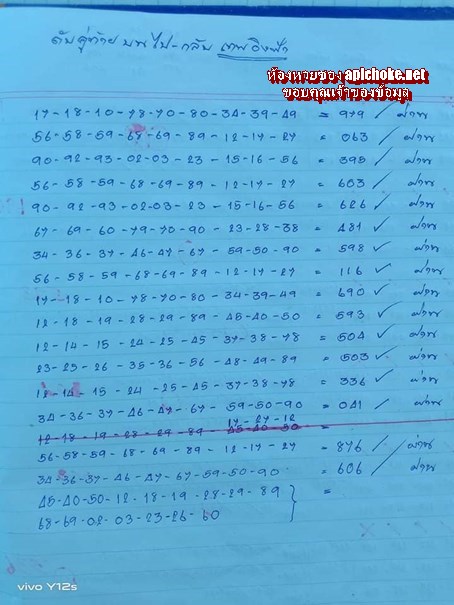 ดับคู่ท้าย บน ไป-กลับ เทพอิงฟ้า
ห้องหวยของ apichoke.net
ขอบคุณเจ้าของข้อมูล
17-18-10-78-70-80-34-39-49 = 979 / ผ่าน
56-58-59-68-69-89-12-17-27 = 063 / ผ่าน
90-92-93-02-03-23-15-16-56 = 395 / ผ่าน
56-58-59-68-69-89-12-17-27 = 603 / ผ่าน
90-92-93-02-03-23-15-16-56 = 626 / ผ่าน
67-69-60-79-70-90-23-28-38 = 481 ✓ ผ่าน
34-36-37-46-47-67-59-50-90 = 598 ✓ ผ่าน
56-58-59-68-69-89-12-17-27 = 116 ✓ ผ่าน
17-18-10-78-70-80-34-39-49 = 690 ✓ ผ่าน
12-18-19-28-29-89-45-40-50 = 593 ✓ ผ่าน
12-14-15-24-25-45-37-38-78 = 504 ✓ ผ่าน
23-25-26-35-36-56-48-49-89 = 503 ✓ ผ่าน
12-14-15-24-25-45-37-38-78 = 336 ✓ ผ่าน
34-36-37-46-47-67-59-50-90 = 041 / ผ่าน
17-27-12
12-18-19-28-29-89-45-40-50 =
56-58-59-68-69-89-12-17-27 = 876 / ผ่าน
34-36-37-46-47-67-59-50-90 = 606 / ผ่าน
45-40-50-12-18-19-28-29-89 } =
68-69-02-03-23-26-60
vivo Y12s